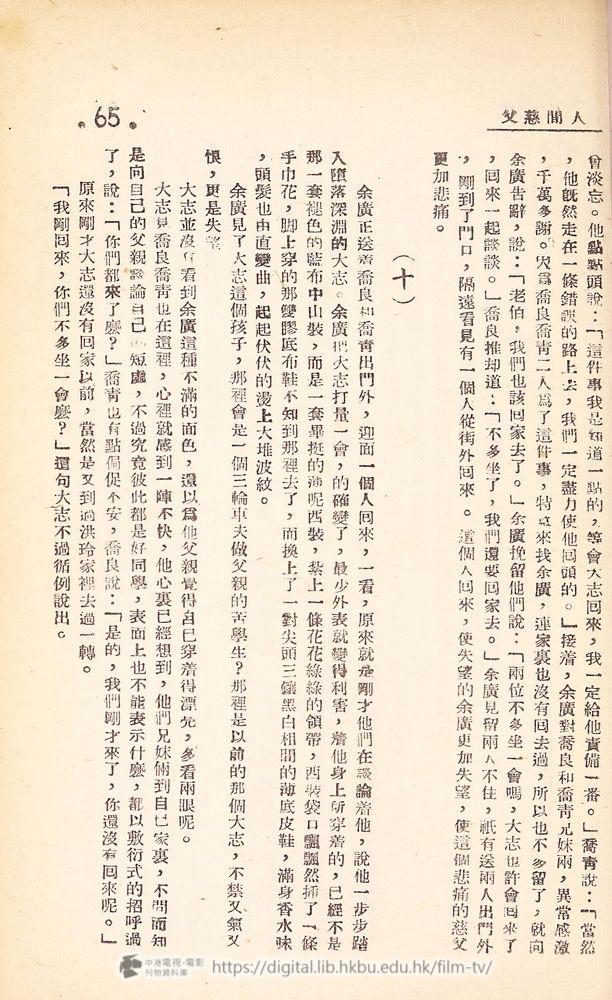 人間慈父
．65．
曾淡忘。他點點頭說：「這件事我是知道一點的，等會大志回來，我一定給他責備一番。」喬青說：「當然
，他旣然走在一條錯誤的路上去，我們一定盡力使他回頭的。」接着，余廣對喬良和喬青兄妹兩，異常感激
，千萬多謝。因爲喬良喬青二人爲了這件事，特意來找余廣，連家裏也沒有回去過，所以也不多留了，就向
余廣告辭，說：「老伯，我們也該回家去了。」余廣挽留他們說：「兩位不多坐一會嗎，大志也許會回來了
，回來一起談談。」喬良推却道：「不多坐了，我們還要回家去。」余廣見留兩人不住，祇有送兩人出門外
，剛到了門口，隔遠看見有一個人從街外回來。這個人回來，使失望的余廣更加失望，使這個悲痛的慈父
更加悲痛。
（十）
余廣正送着喬良和喬青出門外，迎面一個人回來，一看，原來就是剛才他們在談論着他，說他一步步踏
入墮落深淵的大志。余廣把大志打量一會，的確變了，最少外表就變得利害，着他身上所穿着的，已經不是
那一套褪色的藍布中山裝，而是一套畢挺的 呢西裝，紮上一條花花綠綠的領帶，西裝袋口飄飄然揷了一條
手巾花，脚上穿的那雙膠底布鞋不知到那裡去了，而換上了一對尖頭三鑲黑白相間的薄底皮鞋，滿身香水味
，頭髮也由直變曲，起起伏伏的燙上大堆波紋。
余廣見了大志這個孩子，那裡會是一個三輪車夫做父親的苦學生？那裡是以前的那個大志，不禁又氣又
恨，更是失望
大志並沒有看到余廣這種不滿的面色，還以爲他父親覺得自己穿着得漂亮，多看兩眼呢。
大志見喬良喬青也在這裡，心裡就感到一陣不快，他心裏已經想到，他們兄妹倆到自己家裏，不問而知
是向自己的父親談論自己的短處，不過究竟彼此都是好同學，表面上也不能表示什麽，都以敷衍式的招呼過
了，說：「你們都來了麽？」喬青也有點侷促不安，喬良說：「是的，我們剛才來了，你還沒有回來呢。」
原來剛才大志還沒有回家以前，當然是又到過洪玲家裡去過一轉。
「我剛回來，你們不多坐一會麽？」這句大志不過循例說出。
中港電視・電影
刊物資料庫
https://digital.lib.hkbu.edu.hk/film-tv/